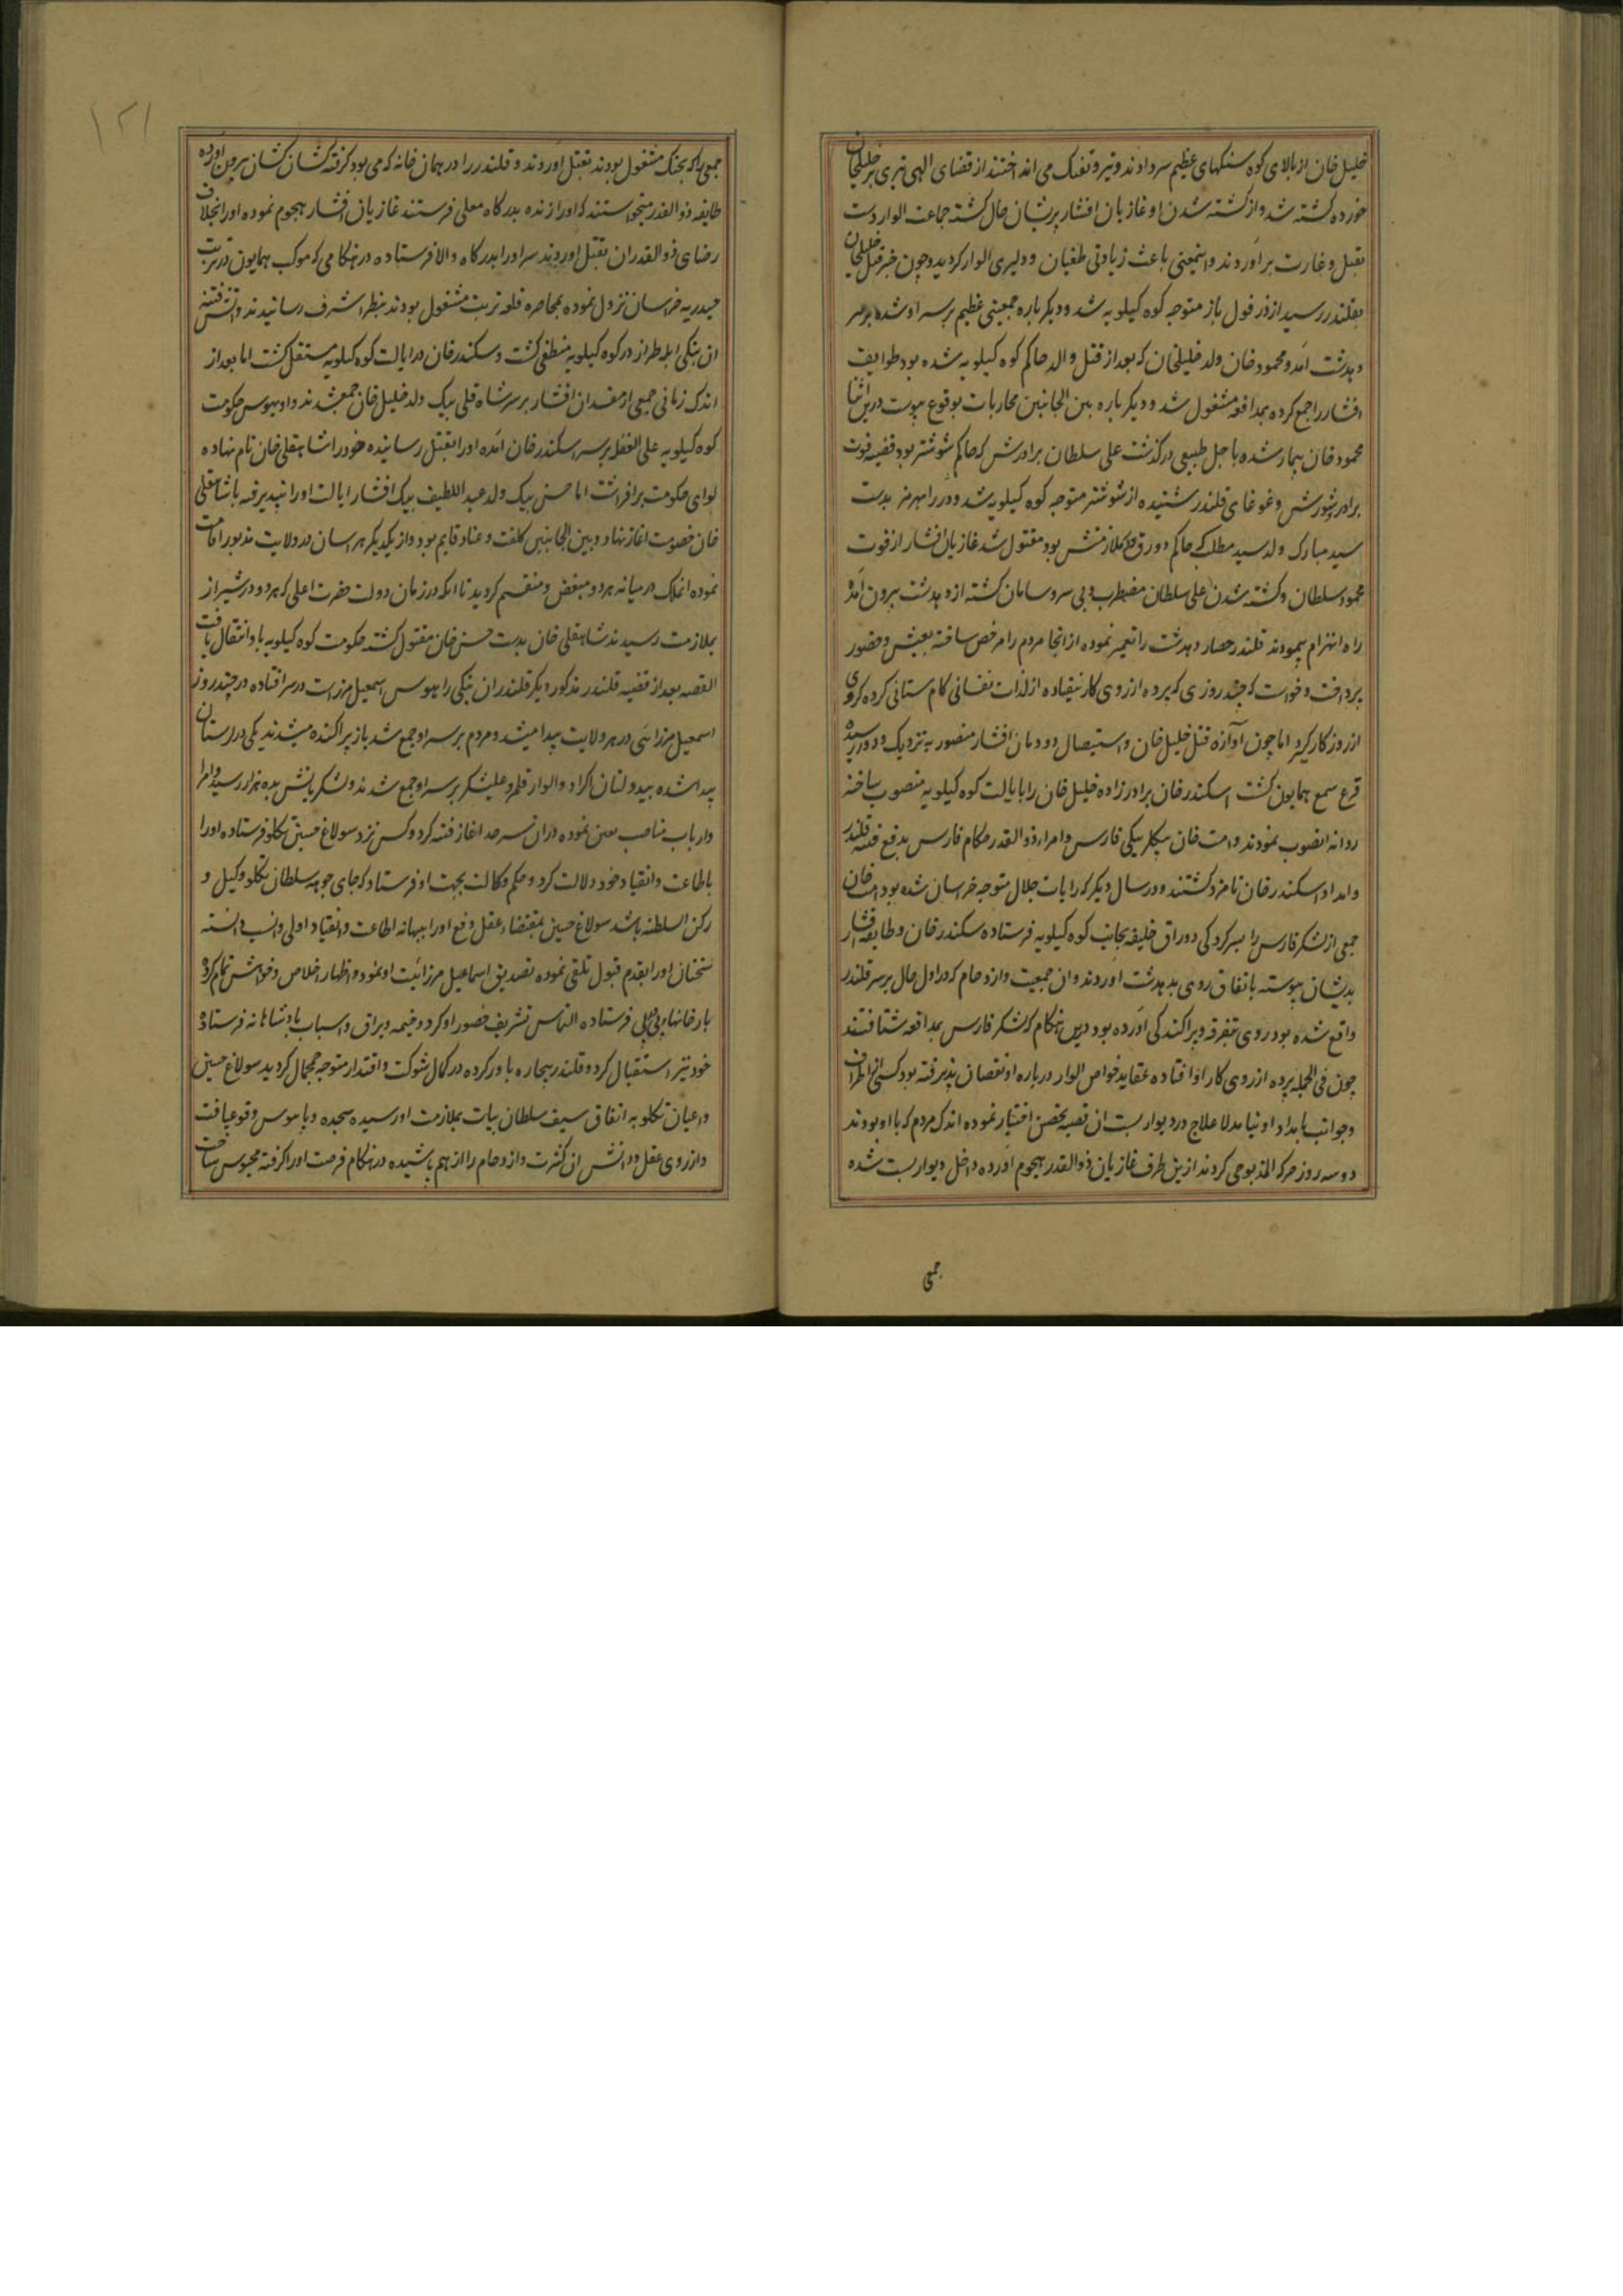 خلیل خان از بالای کوه سنکهای عظیم سر دادند و تیر و تفنک می انداختند از قضای الهی تیری بر خلیلخان
خورده کشته شد و از کشته شدن او غازیان افشار پریشان حال کشته جماعت الوار دست
بقتل و غارت برآوردند و اینمعنی باعث زیادتی طغیان و دلیری الوار کردید و چون خبر قتل خلیلخان
بقلندر رسید از دزفول باز متوجه کوه کیلویه شد و دیکر باره جمعیتی عظیم بر سر او شده بر سر
دهدشت آمد و محمود خان ولد خلیلخان که بعد از قتل والد حاکم کوه کیلویه شده بود طوایف
افشار را جمع کرده بمدافعه مشغول شد و دیکر باره بین الجانبین محاربات بوقوع پیوست درین اثنا
محمود خان بیمار شده باجل طبیعی درکذشت علی سلطان برادرش که حاکم شوشتر بود قضیه فوت
برادر و شورش و غوغای قلندر شنیده از شوشتر متوجه کوه کیلویه شد و در رامهرمز بدست
سید مبارک ولد سید مطلب حاکم دورق که ملازمتش بود مقتول شد غازیان افشار از فوت
محمود سلطان و کشته شدن علی سلطان مضطرب و بی سر و سامان کشته از دهدشت بیرون آمده
راه انهزام پیمودند قلندر حصار دهدشت را تعمیر نموده از انجا مردم را مرخص ساخته بعیش و حضور
پرداخت و خواست که چند روزی که پرده از روی کار نیفتاده از لذات نفسانی کام ستانی کرده کروی
از روزکار کیرد اما چون آوازه قتل خلیل خان و استیصال دودمان افشار منصوریه نزدیک و دور رسیده
قرع سمع همایون کشت اسکندر خان برادرزاده خلیل خان را بایالت کوه کیلویه منصوب ساخته
روانه انصوب نمودند و امت خان بیکلر بیکی فارس و امراء ذوالقدر حکام فارس بدفع فتنه قلندر
و امداد اسکندر خان نامزد کشتند و در سال دیکر که رایات جلال متوجه خراسان شده بود امت خان
جمعی از لشکر فارس را بسرکردکی دوراق خلیفه بجانب کوه کیلویه فرستاده سکندر خان و طایفه افشار
بدیشان پیوسته باتفاق روی بدهدشت اوردند و ان جمعیت و ازدحام که در اول حال بر سر قلندر
واقع شده بود روی بتفرقه و پراکندکی آورده بود درین هنکام که لشکر فارس بمدافعه شتافتند
چون فی الجمله پرده از روی کار او افتاده عقاید خواص الوار درباره او نقصان پذیرفته بود کسی از اطراف
و جوانب بامداد او نیامد لا علاج در دیوار بست ان قصبه تحصن اختیار نموده اندک مردم که با او بودند
دو سه روز حرکة المذبوحی کردند ازین طرف غازیان ذوالقدر هجوم آورده داخل دیوار بست شده
جمعی
۱۲۱
جمعی را که بجنک مشغول بودند بقتل آوردند و قلندر را در همان خانه که می بود کرفته کشان کشان بیرون آورده
طایفه ذوالقدر میخواستند که او را زنده بدرکاه معلی فرستند غازیان افشار هجوم نموده او را بخلاف
رضای ذوالقدران بقتل اوردند سر او را بدرکاه والا فرستاده در هنکامی که موکب همایون در تربت
حیدریه خراسان نزول نموده بمحاصره قلعه تربت مشغول بودند بنظر اشرف رسانیدند و آتش فتنه
ان بنکی ابله طراز در کوه کیلویه منطفی کشت و سکندر خان در ایالت کوه کیلویه مستقل کشت اما بعد از
اندک زمانی جمعی از مفسدان افشار بر سر شاه قلی بیک ولد خلیل خان جمع شدند و او بهوس حکومت
کوه کیلویه علی الغفله بر سر سکندر خان آمده او را بقتل رسانیده خود را شاهقلی خان نام نهاده
لوای حکومت برافراشت اما حسن بیک ولد عبد اللطیف بیک افشار ایالت او را نپذیرفته با شاهقلی
خان خصومت اغاز نهاد و بین الجانبین کلفت و عناد قایم بود و از یکدیکر هراسان در ولایت مذبور اقامت
نموده املاک در میانه هر دو مبغض و منقسم کردید تا انکه در زمان دولت حضرت اعلی که هر دو در شیراز
بملازمت رسیدند شاهقلی خان بدست حسن خان مقتول کشته حکومت کوه کیلویه باو انتقال یافت
القصه بعد از قضیه قلندر مذکور دیکر قلندران بنکی را بهوس اسمعیل میرزائیت در سر افتاده در چند روز
اسمعیل میرزائی در هر ولایت پیدا میشد و مردم بر سر او جمع شده باز پراکنده میشدند یکی در لرستان
پیدا شده بیدولتان اکراد و الوار قلمرو علیشکر بر سر او جمع شدند و لشکریانش بده هزار رسید و امرا
و ارباب مناصب معین نموده در ان سرحد اغاز فتنه کرد و کس نزد سولاغ حسین تکلو فرستاده او را
باطاعت و انقیاد خود دلالت کرد و حکم وکالت بجهت او فرستاد که جای جوهه سلطان تکلو وکیل و
رکن السلطنه باشد سولاغ حسین بمقتضاء عقل دفع او را ببهانه اطاعت و انقیاد اولی و انسب دانسته
سخنان او را بقدم قبول تلقی نموده تصدیق اسماعیل میرزائیت او نمود و اظهار اخلاص و خواهش تمام کرده
بارخانها پی در پی فرستاده التماس تشریف حضور او کرد و خیمه و یراق و اسباب پادشاهانه فرستاده
خود نیز استقبال کرد و قلندر بیچاره باور کرده در کمال شوکت و اقتدار متوجه چمجمال کردید سولاغ حسین
و اعیان تکلو به اتفاق سیف سلطان بیات بملازمت او رسیده سجده و پابوس وقوع یافت
و از روی عقل و دانش ان کثرت و ازدحام را از هم پاشیده در هنکام فرصت او را کرفته محبوس ساخت